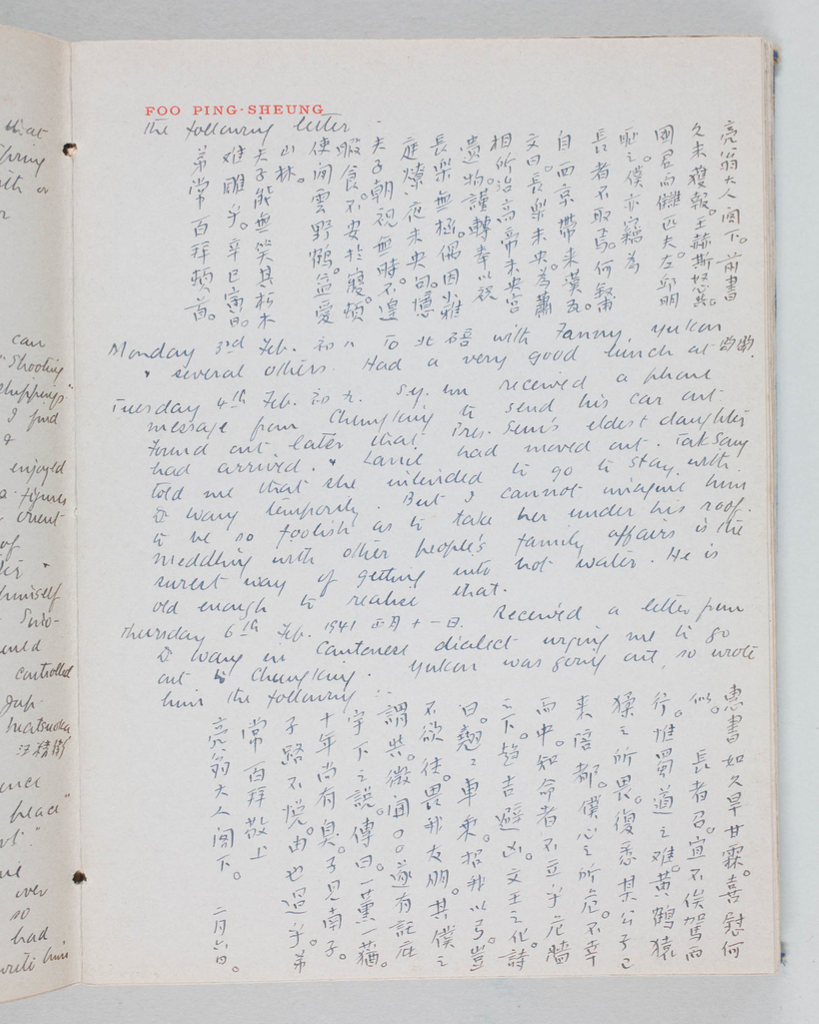 FOO PING-SHEUNG
the following letter
亮翁大人阁下。前書
久未獲報。王赫斯怒
國君而讎匹夫。左邱明
恥之。僕亦竊為
長者不取焉。何叙甫
自西京帶来漢瓦。
文曰長樂未央。為蕭
相所治高帝未央宮
遺物。謹轉奉以祝
長樂無極。偶因小雅
庭燎夜未央句。憶
夫子朝視無時。不遑
暇食。不安於寢。頓
使閒雲野鶴益愛
山林。
夫子能無笑其朽木
难雕乎。辛巳寅日。
弟常百拜頓首。
Monday 3rd Feb. 初八 To 北碚 with Fanny, Yukon
& several others. Had a very good lunch at
Tuesday 4th Feb. 初九. Sy. Wu received a phone
message from Chungking to send his car out.
Found out later that Pres. Sun's eldest daughter
had arrived. & Lanie had moved out. Tak Sang
told me that she intended to go to stay with
D Wang temporily. But I cannot imagine him
to be so foolish as to take her under his roof.
Meddling with other people's family affairs is the
surest way of getting into hot water. He is
old enough to realise that.
Thursday 6th Feb. 1941 正月十一日. Received a letter from
D Wang in Cantonese dialect urging me to go
out to Chungking. Yukon was going out, so wrote
him the following :
惠書如久旱甘霖。喜慰何
似。長者召。宜不俟駕而
行。惟蜀道之难。黄鶴猿
猱之所畏。復悉某公子已
来陪都。僕心之所危。不幸
而中。知命者不立乎危牆
之下。趋吉避凶。文王之化。詩
曰。翹翹車乘。招我以弓。豈
不欲往。畏我友朋。其僕之
謂矣。微聞〇〇遂有託庇
宇下之說。傳曰。一薰一蕕。
十年尚有臭。子見南子。
子路不悦。由也過乎。弟
常百拜敬上
亮翁大人阁下。二月六日。
that
with a
can
"Shooting
I find
&
enjoyed
figures
of
himself
controlled
Jap.
Matsuoka
汪精衛
head"
over
so
had
write him